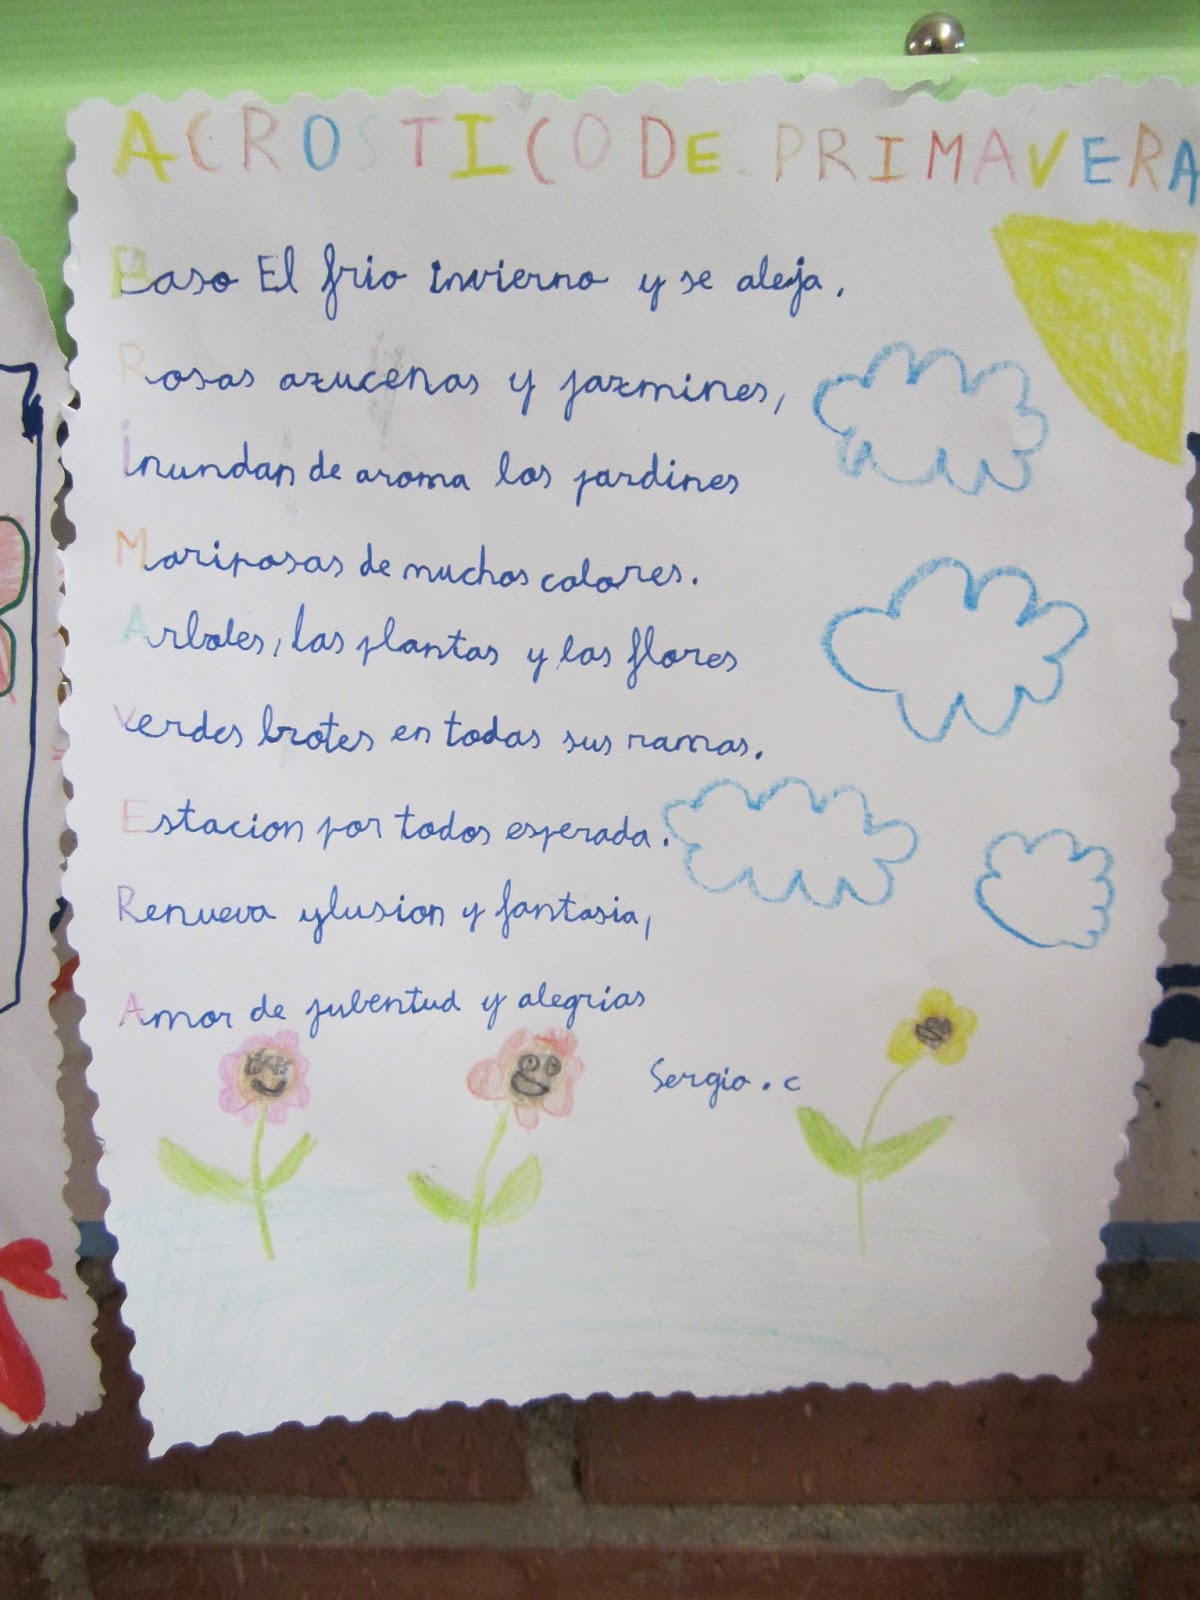 ACROSTICO DE PRIMAVERA
Paso El frio invierno y se aleja.
Rosas azucenas y jazmines,
inundan de aroma los jardines
Mariposas de muchos colores.
Arboles, las plantas y las flores
verdes brotes en todas sus ramas.
Estacion por todos esperada.
Renueva ylusion y fantasia,
Amor de jubentud y alegrias
Sergio . c